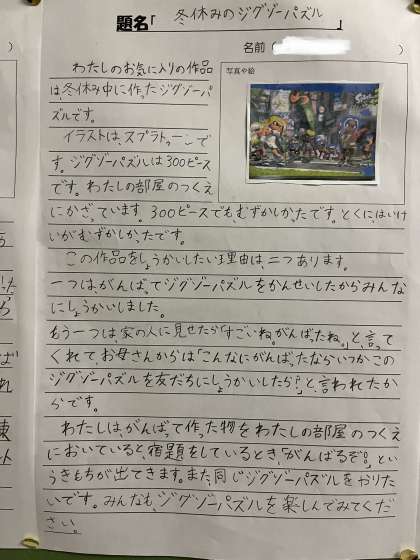 題名「 冬休みのジグゾーパズル 」
名前（ ）
写真や絵
わたしのお気に入りの作品
は、冬休み中に作ったジグゾーパ
ズルです。
イラストは、スプラトゥーンで
す。ジグゾーパズルは300ピース
です。わたしの部屋のつくえ
にかざっています。300ピースでも、むずかしかったです。とくに、はいけ
いがむずかしかったです。
この作品をしょうかいしたい理由は、二つあります。
一つは、がんばってジグゾーパズルをかんせいしたからみんな
にしょうかいしました。
もう一つは家の人に見せたら「すごいね。がんばったね。」と、言って
くれて、お母さんからは「こんなにがんばったならいつかこの
ジグゾーパズルを友だちにしょうかいしたら？」と、言われたか
らです。
わたしは、がんばって作った物をわたしの部屋のつくえ
においていると、宿題をしているとき、「がんばるぞ！」とい
うきもちが出てきます。また、同じジグゾーパズルをやりた
いです。みんなも、ジグゾーパズルを楽しんでみてくだ
さい。